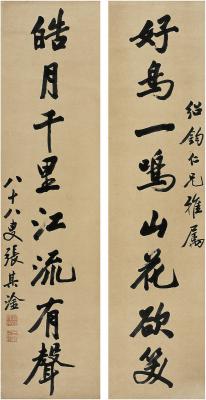 好鳥一鳴山花欲笑
紹鈞仁兄雅屬
皓月千里江流有聲
八十八叟張其淦